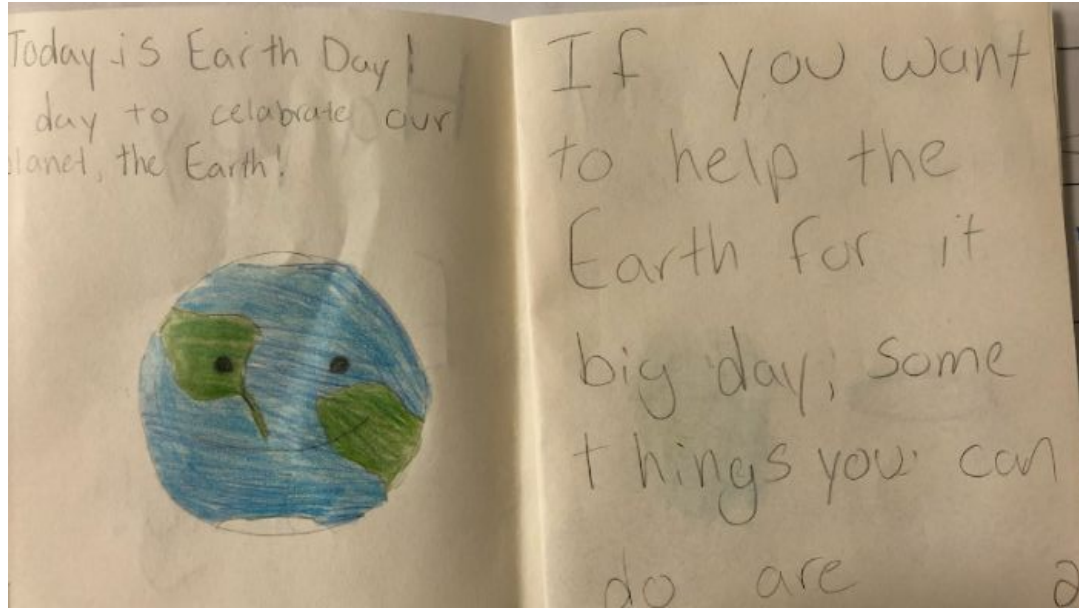 Today is Earth Day!
day to celabrate our
lanet, the Earth!
If you want
to help the
Earth for it
big day, some
things you can
do are
2